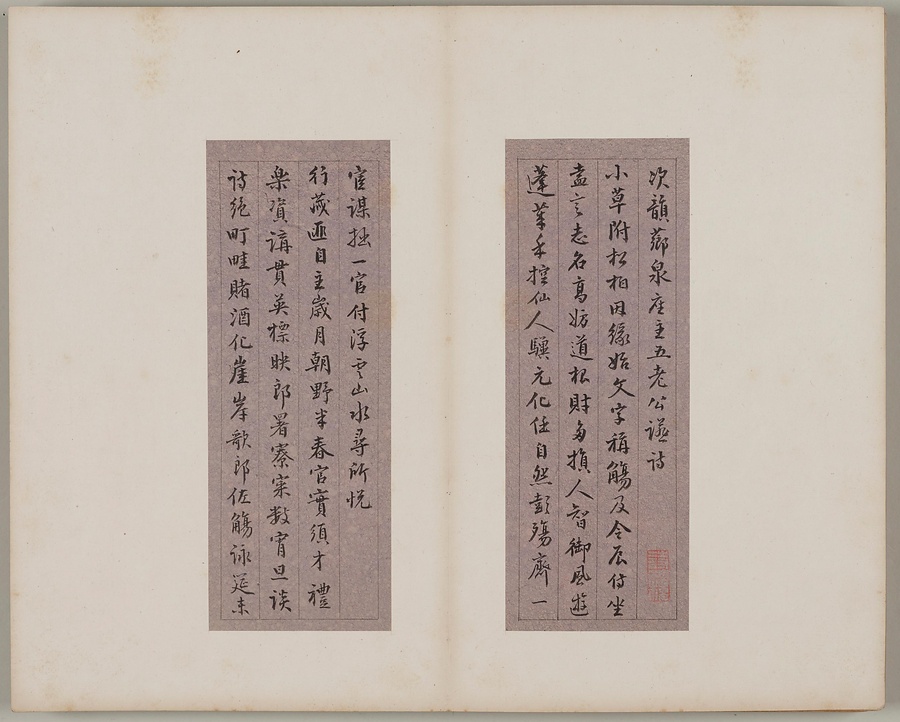 次韻薌泉座主五老公讌詩
小草附松柏因緣始文字稱觴及令辰侍坐
盍言志名高妨道根財多損人智御風遊
蓬萊手控仙人驥元化任自然彭殤齊一
宦謀拙一官付浮雲山水尋所悅
行藏匪自主歲月朝野半春官實須才禮
樂資講貫英標映郎署寮寀數宵旦談
詩絕町畦賭酒化崖岸歌郎佐觴詠延未